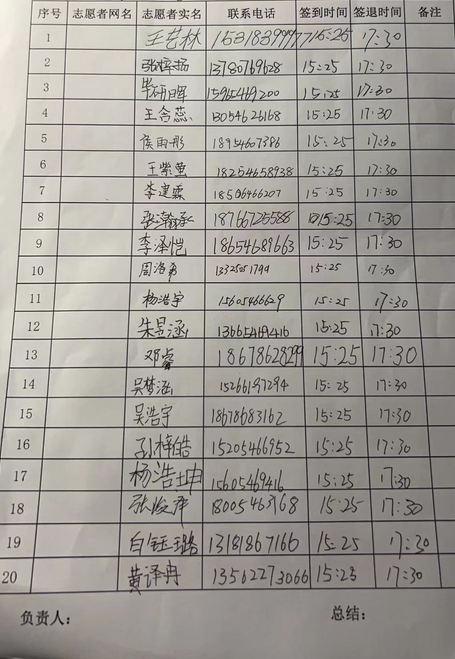 序号 志愿者网名 志愿者实名 联系电话 签到时间 签退时间 备注
1 王艺林 15:25 17:30
2 13780769628 15:25 17:30
3 15965469200 15:25 17:30
4 王含蕊 13054626168 15:25 17:30
5 侯雨彤 18954607386 15:25 17:30
6 王紫萱 18254658938 15:25 17:30
7 李建霖 18506466207 15:25 17:30
8 张瀚承 18766725588 15:25 17:30
9 李泽恺 18654689663 15:25 17:30
10 15:25 17:30
11 杨浩宇 15605466629 15:25 17:30
12 朱昱涵 13665469416 15:25 17:30
13 邓睿 18678628299 15:25 17:30
14 吴梦涵 15266197294 15:25 17:30
15 吴浩宇 18678683162 15:25 17:30
16 孙梓皓 15205466952 15:25 17:30
17 杨浩坤 15605469416 15:25 17:30
18 18005463168 15:25 17:30
19 白钰璐 13181867166 15:25 17:30
20 黄泽冉 13562273066 15:23 17:30
负责人： 总结：